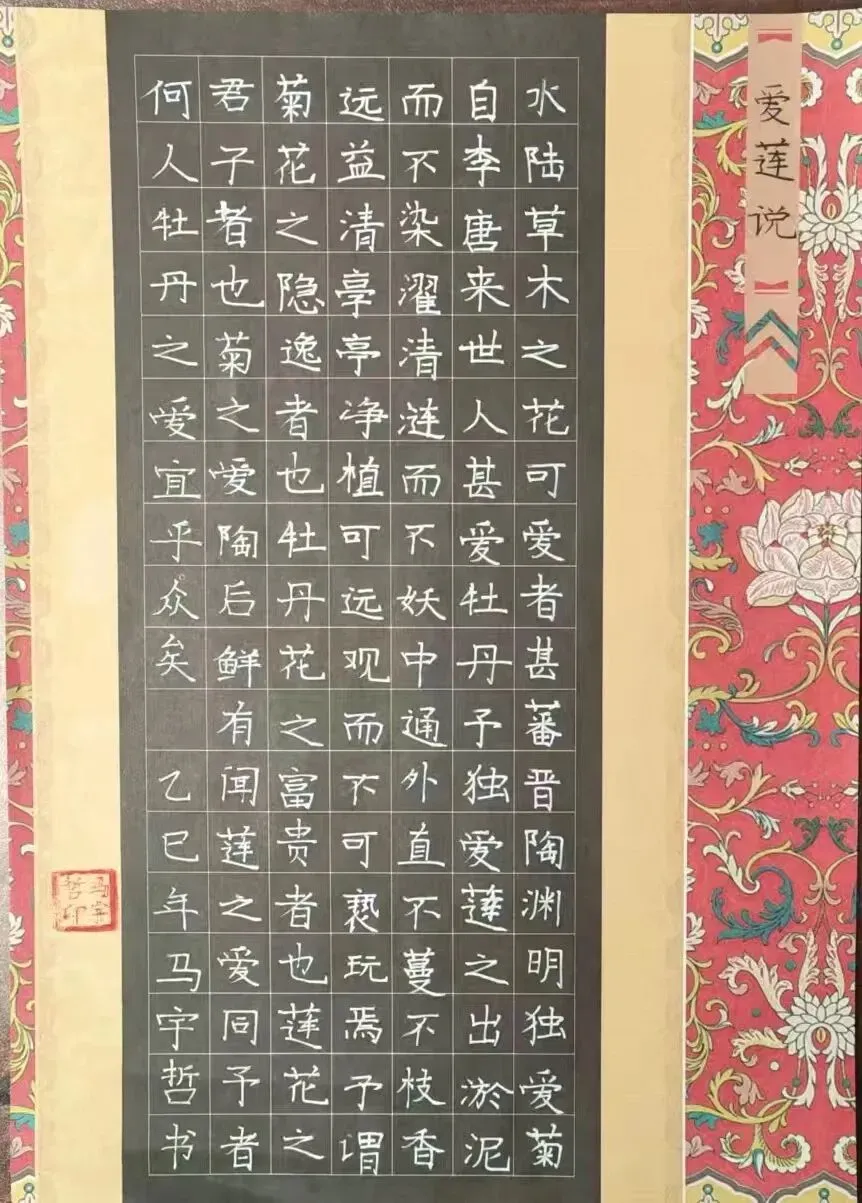 爱莲说
水陆草木之花可爱者甚蕃晋陶渊明独爱菊
自李唐来世人甚爱牡丹予独爱莲之出淤泥
而不染濯清涟而不妖中通外直不蔓不枝香
远益清亭亭净植可远观而不可亵玩焉予谓
菊花之隐逸者也牡丹花之富贵者也莲花之
君子者也菊之嗳陶后鲜有闻莲之爱同予者
何人牡丹之嗳宜乎众矣 乙巳年马宇哲书
马宇哲印